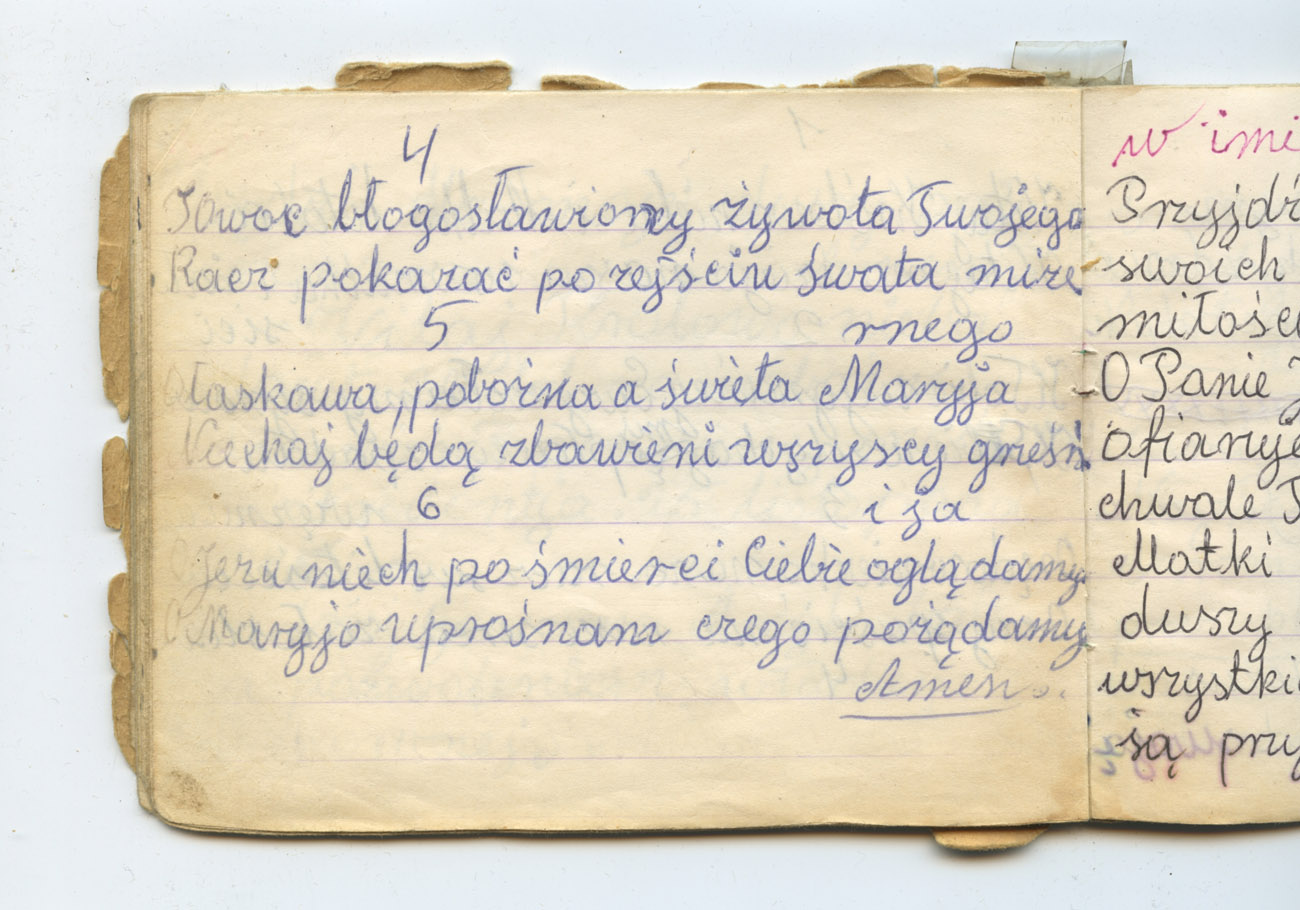 4
Owoc błogosławiony żywota Twojego
Racz pokazać po zejściu świata mize
5 rnego
O łaskawa, pobożna a święta Maryja
Niechaj będą zbawieni wszyscy grześn.
6 i ja
O Jezu niech po śmierci Ciebie oglądamy.
O Maryjo uprośnam czego pożądamy
Amen
w imi
Przyjdź
swoich
miłości
O Panie J
Ofiaruję
chwale T
Matki
duszy
wszystki
są przy